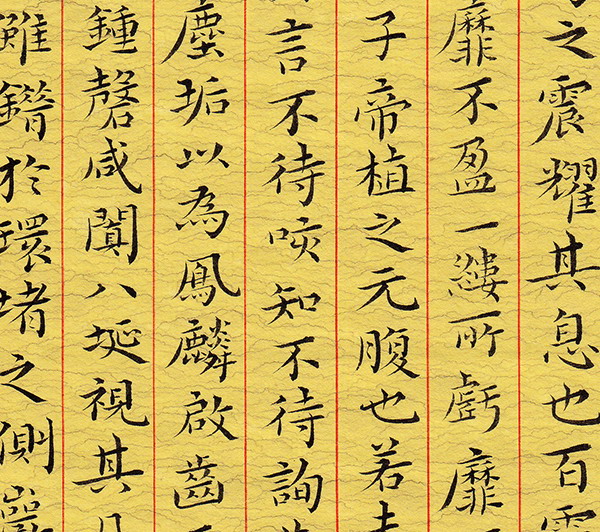 之震耀其息也百
靡不盈一縷所虧靡
子帝植之元腹也若
言不待咳知不待詢
塵垢以為鳳麟啟齒
鍾磬咸闐八埏視其
雖鐕於環堵之側